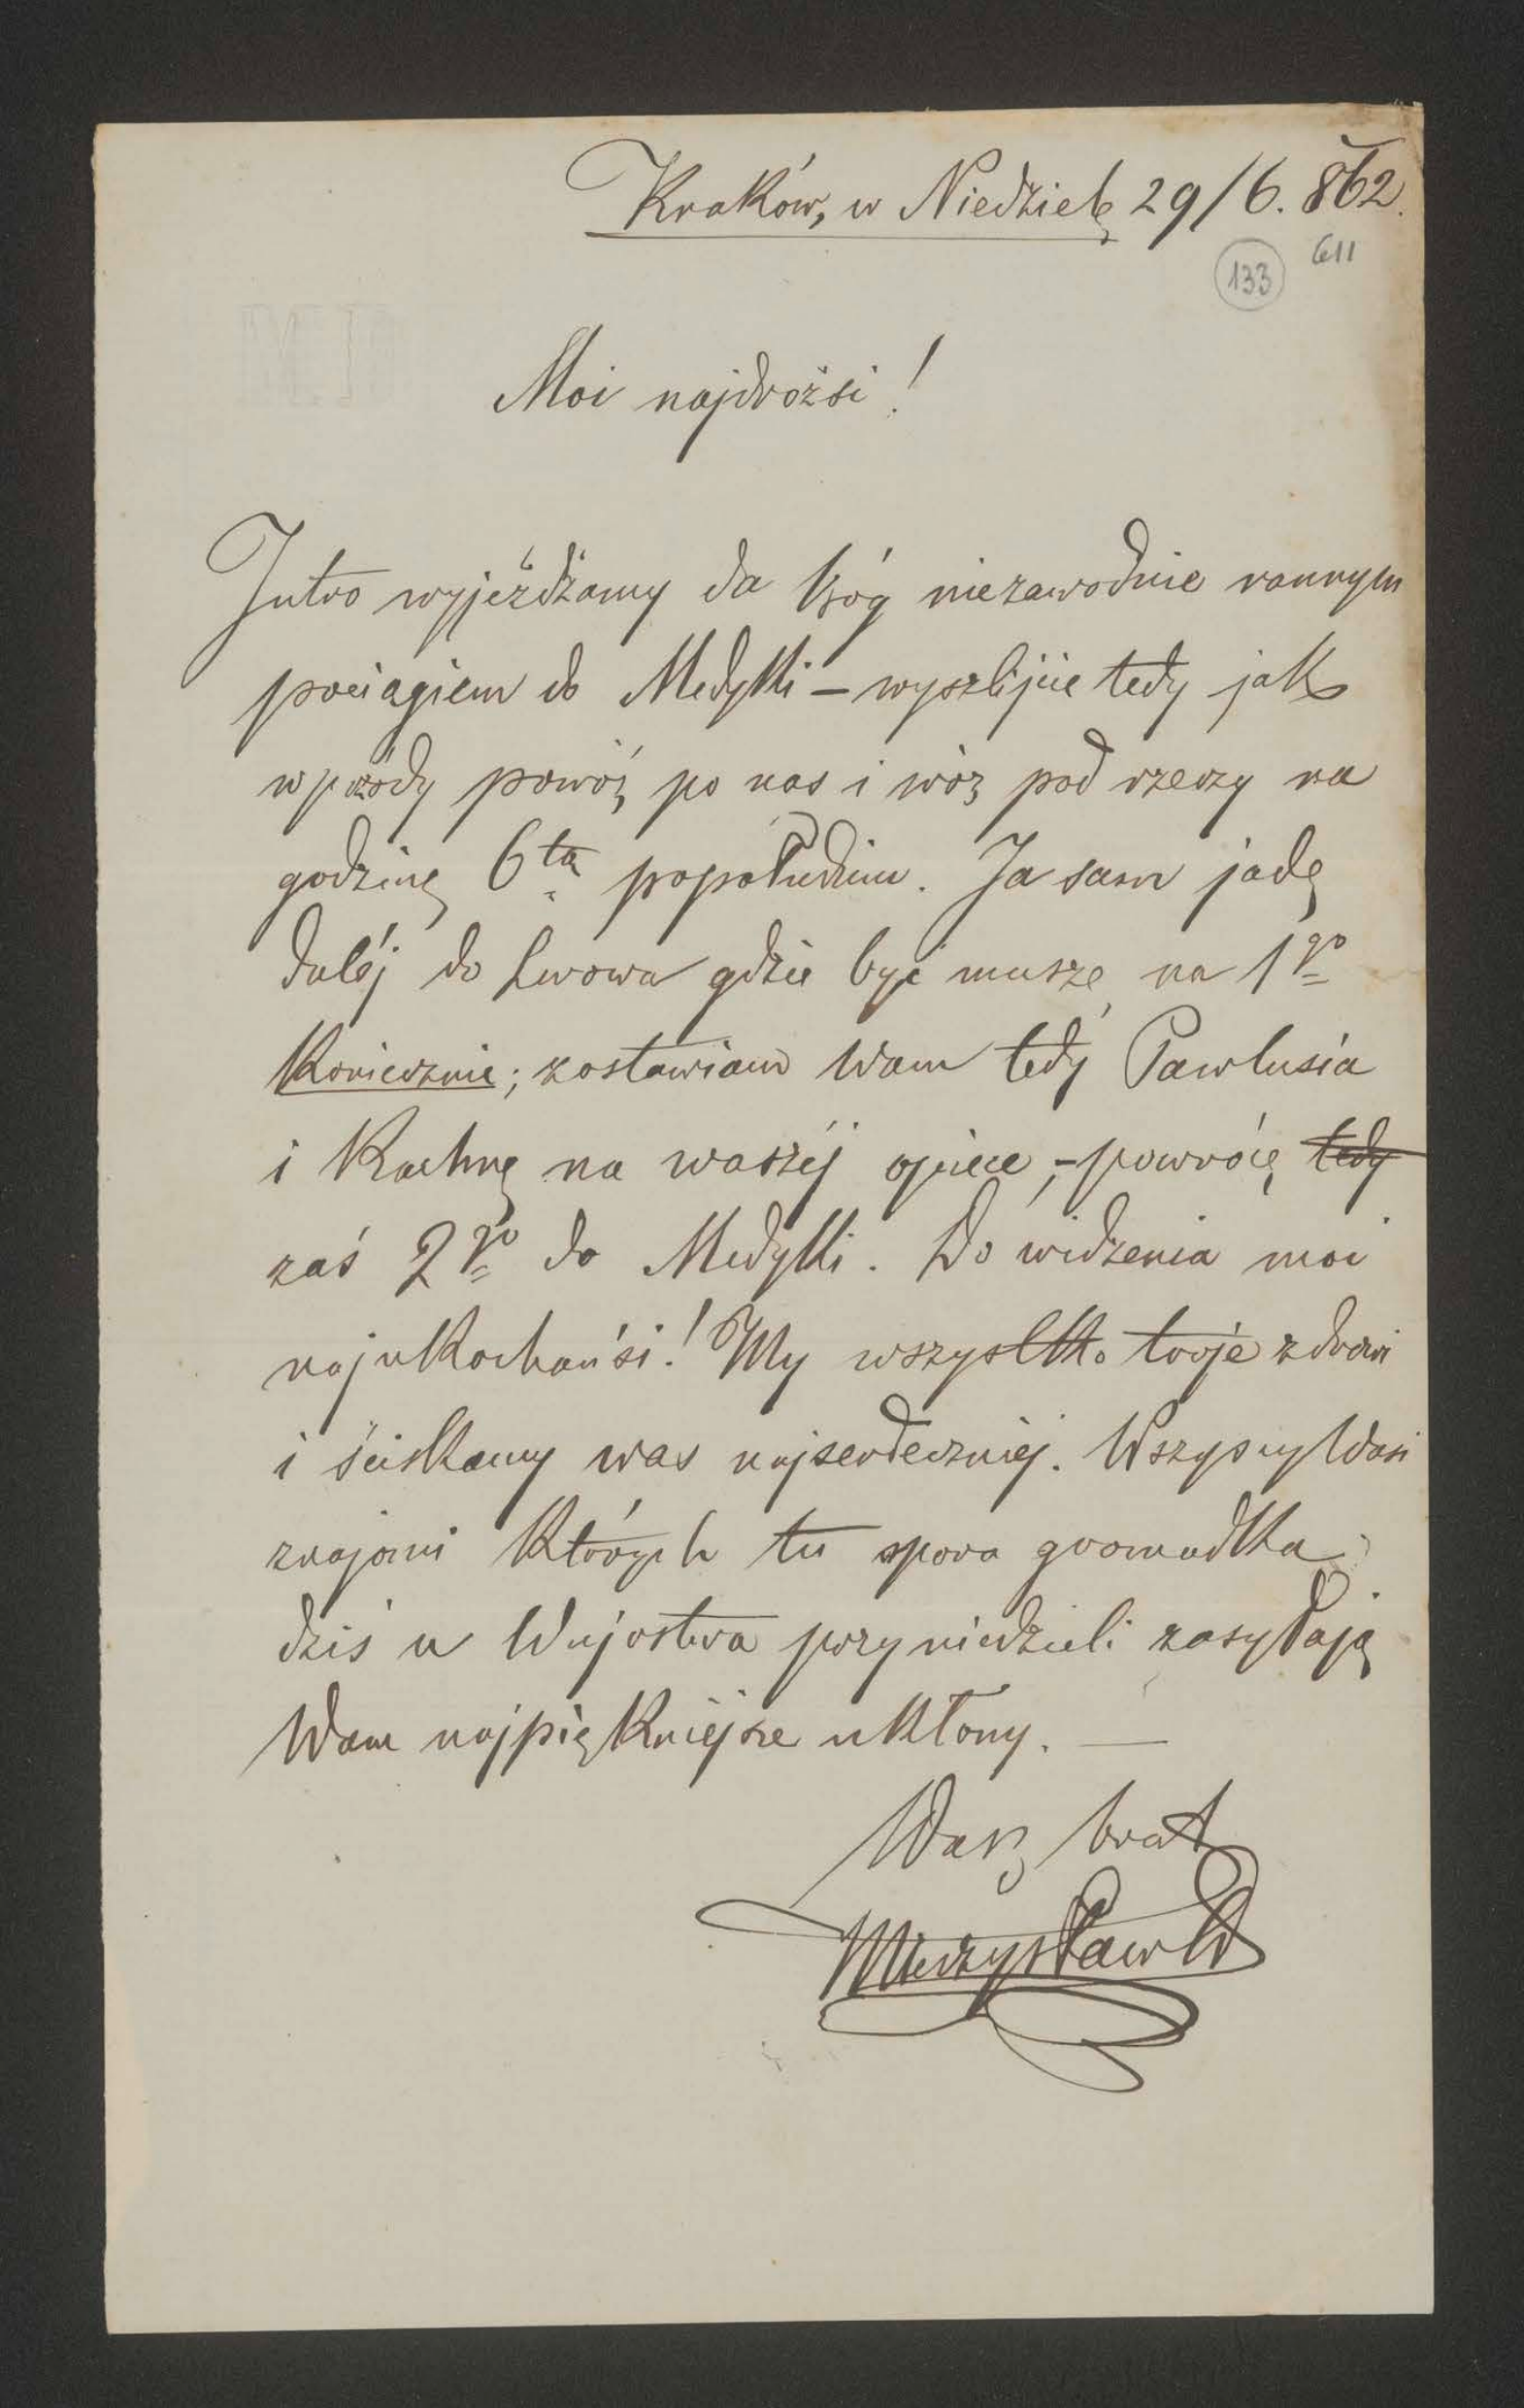 Kraków, w Niedzielę 29/6. 862.
133 611
Moi najdrożsi!
Jutro wyjeżdżamy da Bóg niezawodnie rannym
pociągiem do Medyki – wyszlijcie tedy jak
wprzódy powóz po nas i wóz pod rzeczy na
godzinę 6tą popołudniu. Ja sam jadę
daléj do Lwowa gdzie być muszę na 1go
koniecznie; zostawiam Wam tedy Pawlusia
i Kachnę na waszéj opiece, – powrócę tedy
zaś 2go do Medyki. Do widzenia moi
najukochańsi! My wszystko troje zdrowi
i ściskamy was najserdeczniéj. Wszyscy Wasi
znajomi których tu spora gromadka
dziś u Wujostwa przy niedzieli zasyłają
Wam najpiękniéjsze ukłony. —
Wasz brat
Mieczysław